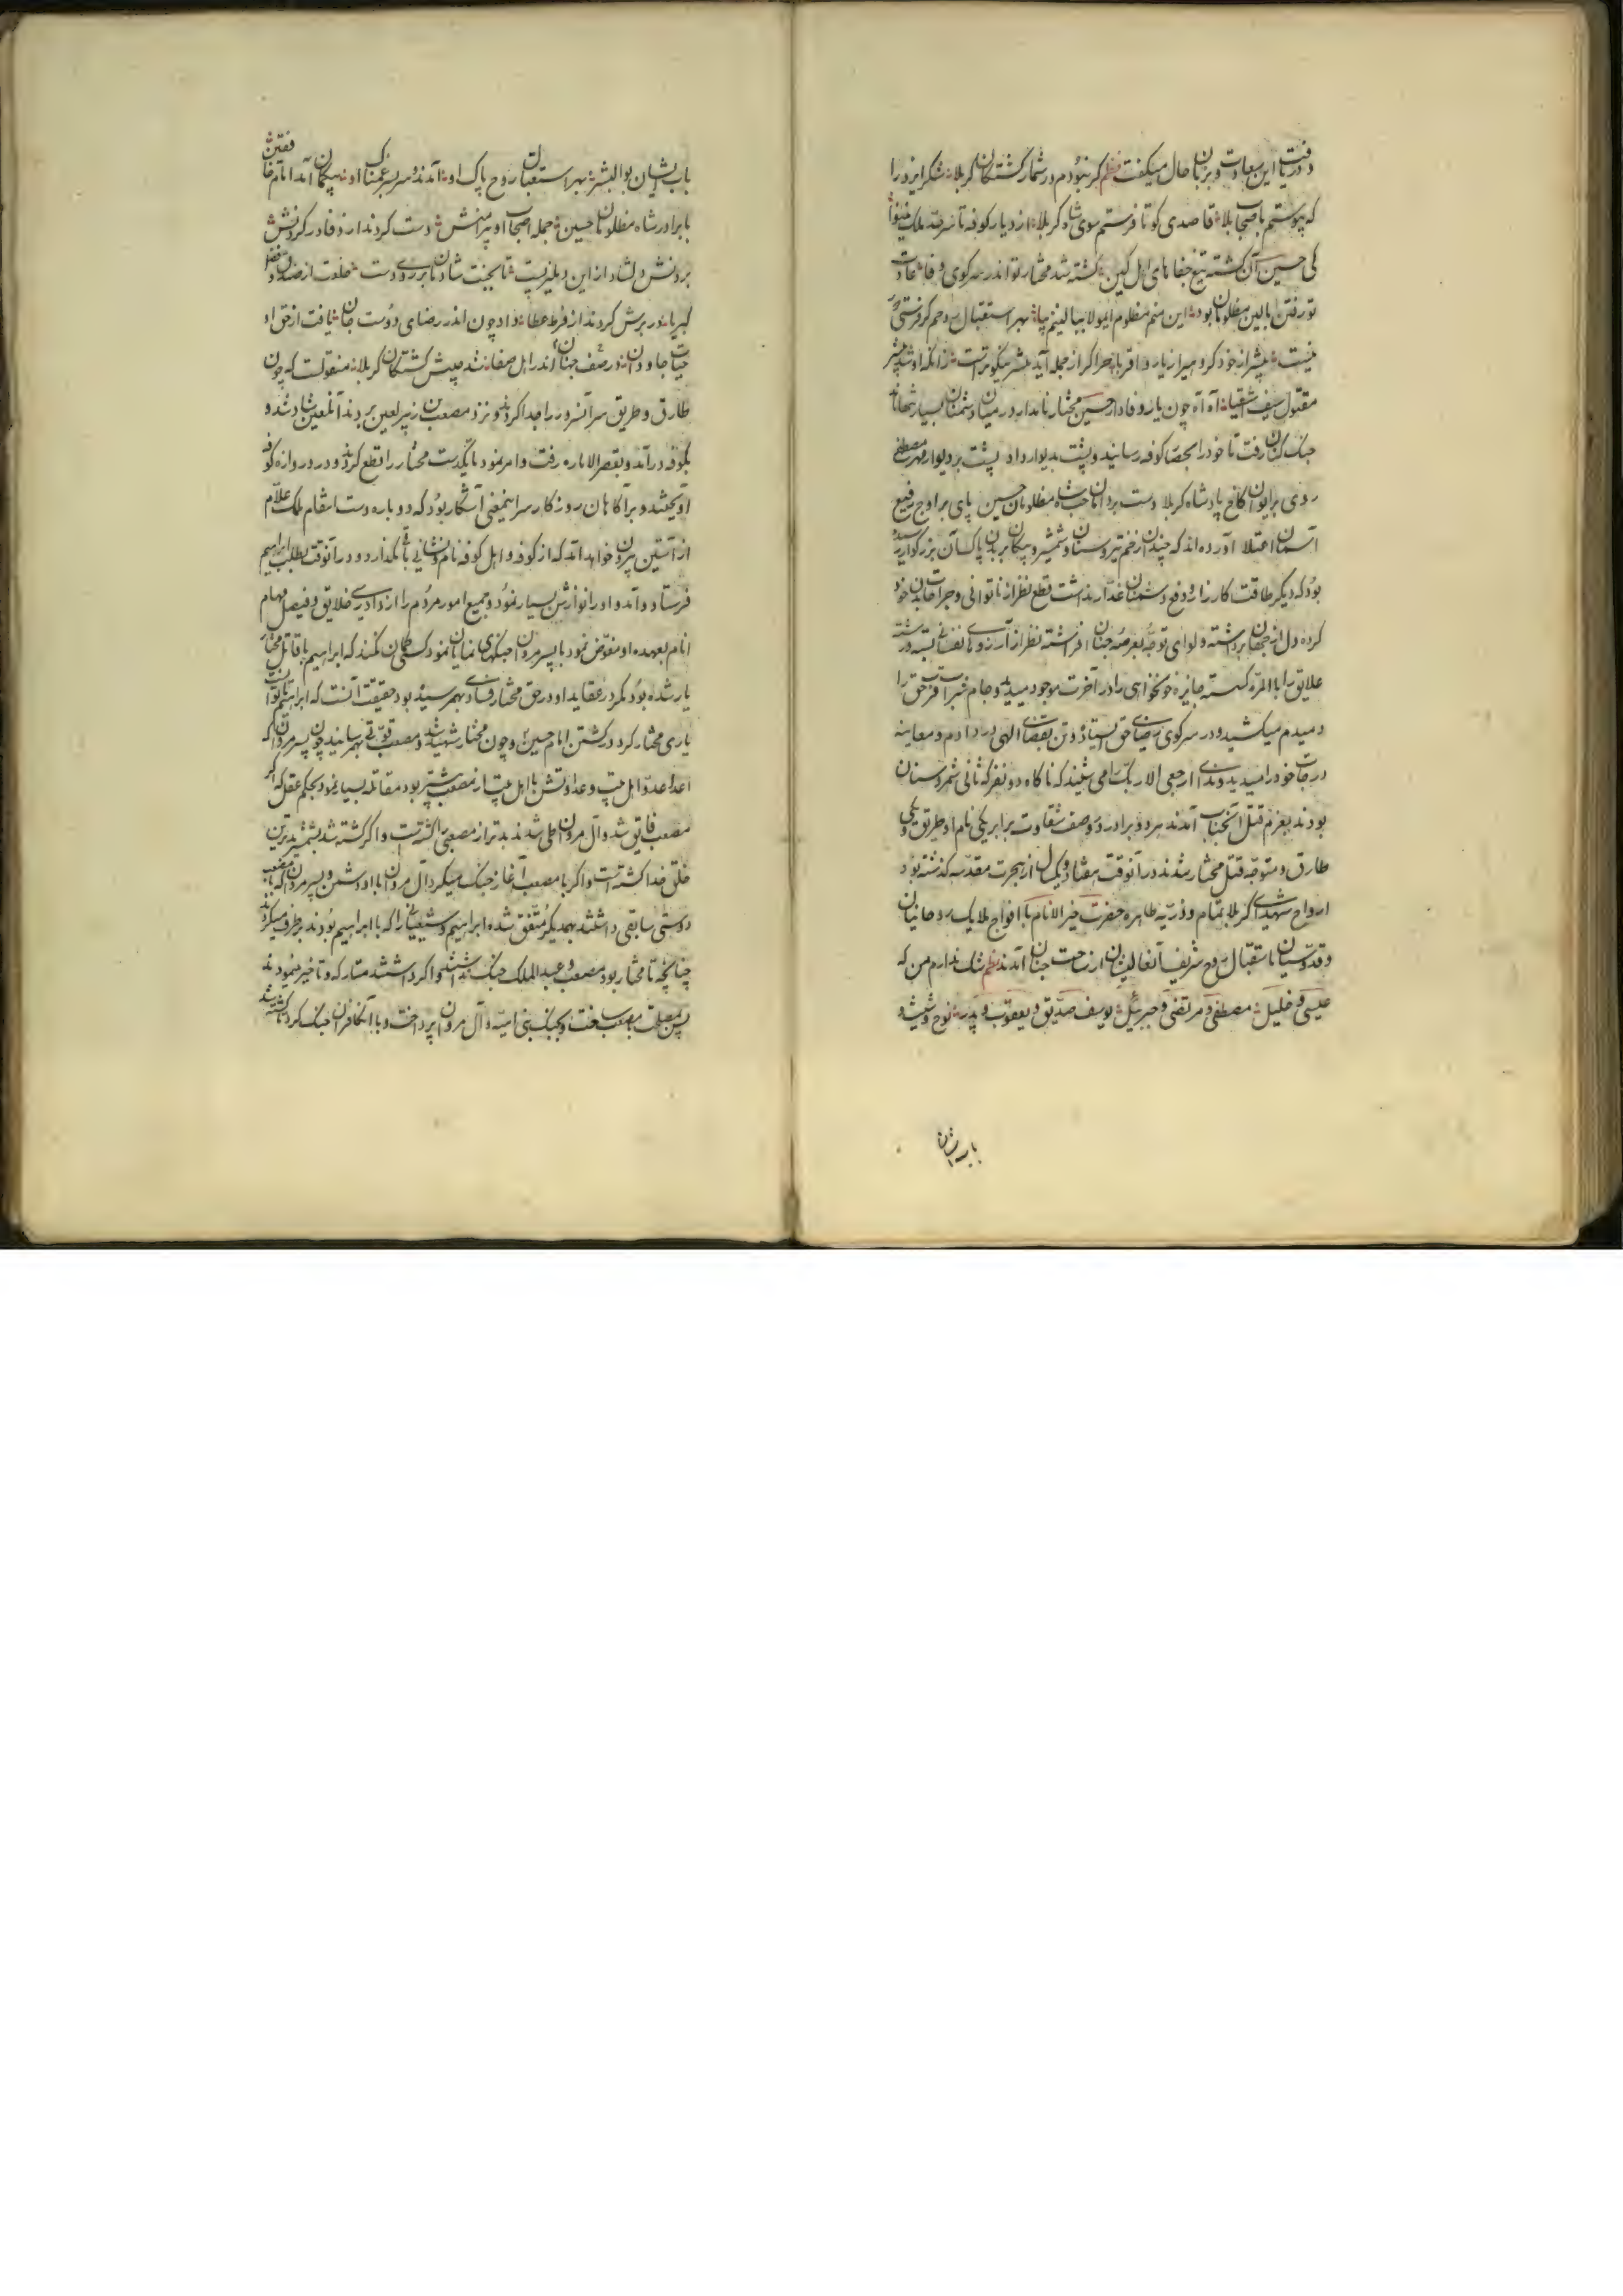 دریافت این سعادت و بزبان حال میگفت نظم کر نبودم در شمار کشتکان کربلا شکر ایزد را
که پیوستم باصحاب بلا قاصدی کو تا فرستم سوی شاه کربلا از دیار کوفه تا سرحد ملک نینوا
کی حسین آن کشته تیغ جفاهای اهل کین کشته شد مختار تو اندر سر کوی وفا عادت
تو رفتن بالین مظلومان بود این منم مظلوم ایمولا ببالینم بیا بهر استقبال روحم کر فرستی
نیست بیشتر از خود کرو میر از یار و اقربا حر اکر از جمله آید بیشتر نیکوترست زانکه او شد پیشتر
مقتول سیف اشقیا آه آه چون یار وفادار حسین مختار نامدار در میان دشمنان بسیار تنها ماند
جنک کنان رفت تا خود را بحصار کوفه رسانید و پشت بدیوار داد پشت بر دیوار مهر مصطفی
روی بر ایوان کاخ پادشاه کربلا دست بر دامان حب شاه مظلومان حسین پای بر اوج رفیع
آسمان اعتلا آورده اند که چندان زخم تیر و سنان و شمشیر و پیکان بر بدن پاک آن بزرکوار رسیده
بود که دیکر طاقت کارزار و دفع دشمنان غدار نداشت قطع نظر از ناتوانی و جراحات بدن خود
کرده دل از جهان برداشته و لوای توجه بعرصه جنان افراشته نظر از آرزوهای نفسانی بسته و رشته
علایق را بالمره کسسته جایزه خونخواهی را در آخرت موجود میدید و جام شراب قرب حق را
دمبدم میکشید و در سر کوی رضای حق ایستاده و تن بقضای الهی در داده و معاینه
درجات خود را میدید و ندای ارجعی الی ربک را می شنید که ناکاه دو نفر که ثانی شمر و سنان
بودند بعزم قتل آنجناب آمدند هر دو برادر و در وصف شقاوت برابر یکی نام او طریق و یکی
طارق و متوجه قتل مختار شدند در آنوقت هفتاد و یکسال از هجرت مقدسه کذشته بود
ارواح شهدای کربلا بتمام و ذریه طاهره حضرت خیر الانام با افواج ملایک روحانیان
و قدوسیان باستقبال روح شریف آنعالیشان از ساحت جنان آمدند نظم شک ندارم من که
عیسی و خلیل مصطفی و مرتضی و جبرئیل یوسف صدیق و یعقوب و پدر نوح و شیث و
باب ایشان
باب ایشان بوالبشر بهر استقبال روح پاک او آمدند و سر بسر غمناک او بیکمان آمد امام خافقین
با برادر شاه مظلومان حسین جمله اصحاب او پیرامنش دست کردند از وفا در کردنش
بردنش دلشاد از این دهلیز پست تا بجنت شادمان بر روی دست خلعت از صندوق فضل
کبریا در برش کردند از فرط عطا داد چون اندر رضای دوست جان یافت از حق او
حیات جاودان در صف جنان اندر اهل صفا شد پیش کشتکان کربلا منقولست که چون
طارق و طریق سر آنسرور را جدا کردند و نزد مصعب بن زبیر لعین بردند آنلعین شاد شد و
بکوفه درآمد و بقصر الاماره رفت و امر نمود تا یکدست مختار را قطع کردند و در دروازه کوفه
آویختند و بر آکاهان روزکار سر اینمعنی آشکار بود که دوباره دست انتقام ملک علام
از آستین بیرون خواهد آمد که از کوفه و اهل کوفه نام و نشانی باقی نکذارد و در آنوقت بطلب ابراهیم
فرستاد و آمد و او را نوازش بسیار نمود و جمیع امور مردم را از دادرسی خلایق و فیصل مهام
انام بعهده او مفوض نمود با پسر مروان جنکهای نمایان نمود کسی کمان نکند که ابراهیم با قاتل مختار
یار شده بود مکر در عقاید او در حق مختار فسادی بهم رسیده بود حقیقت آنست که ابراهیم
یاری مختار کرد در کشتن امام حسین و چون مختار شهید شد و مصعب قوتی بهم رسانید چون پسر مروان که
اعدا عدو اهل بیت و عداوتش با اهل بیت از مصعب بیشتر بود مقاتله بسیار نمود بحکم عقل که اکر
مصعب فایق شد و آل مروان طی شدند بدتر از مصعبی را کشته است و اکر کشته شد بشمشیر بدترین
خلق خدا کشته است و اکر با مصعب آغاز جنک میکرد آل مروان با او دشمن و پسر مروان که با مصعب
دوستی سابقی داشتند بهمدیکر متفق شده ابراهیم و شیعیانی را که با ابراهیم بودند برطرف میکردند
چنانچه تا مختار بود مصعب و عبد الملک جنک نداشتند و اکر داشتند متارکه و تاخیر مینمودند
پس بمصلحت بمصعب ساخت و بجنک بنی امیه و آل مروان پرداخت و با آنکافران جنک کرد تا کشته شد